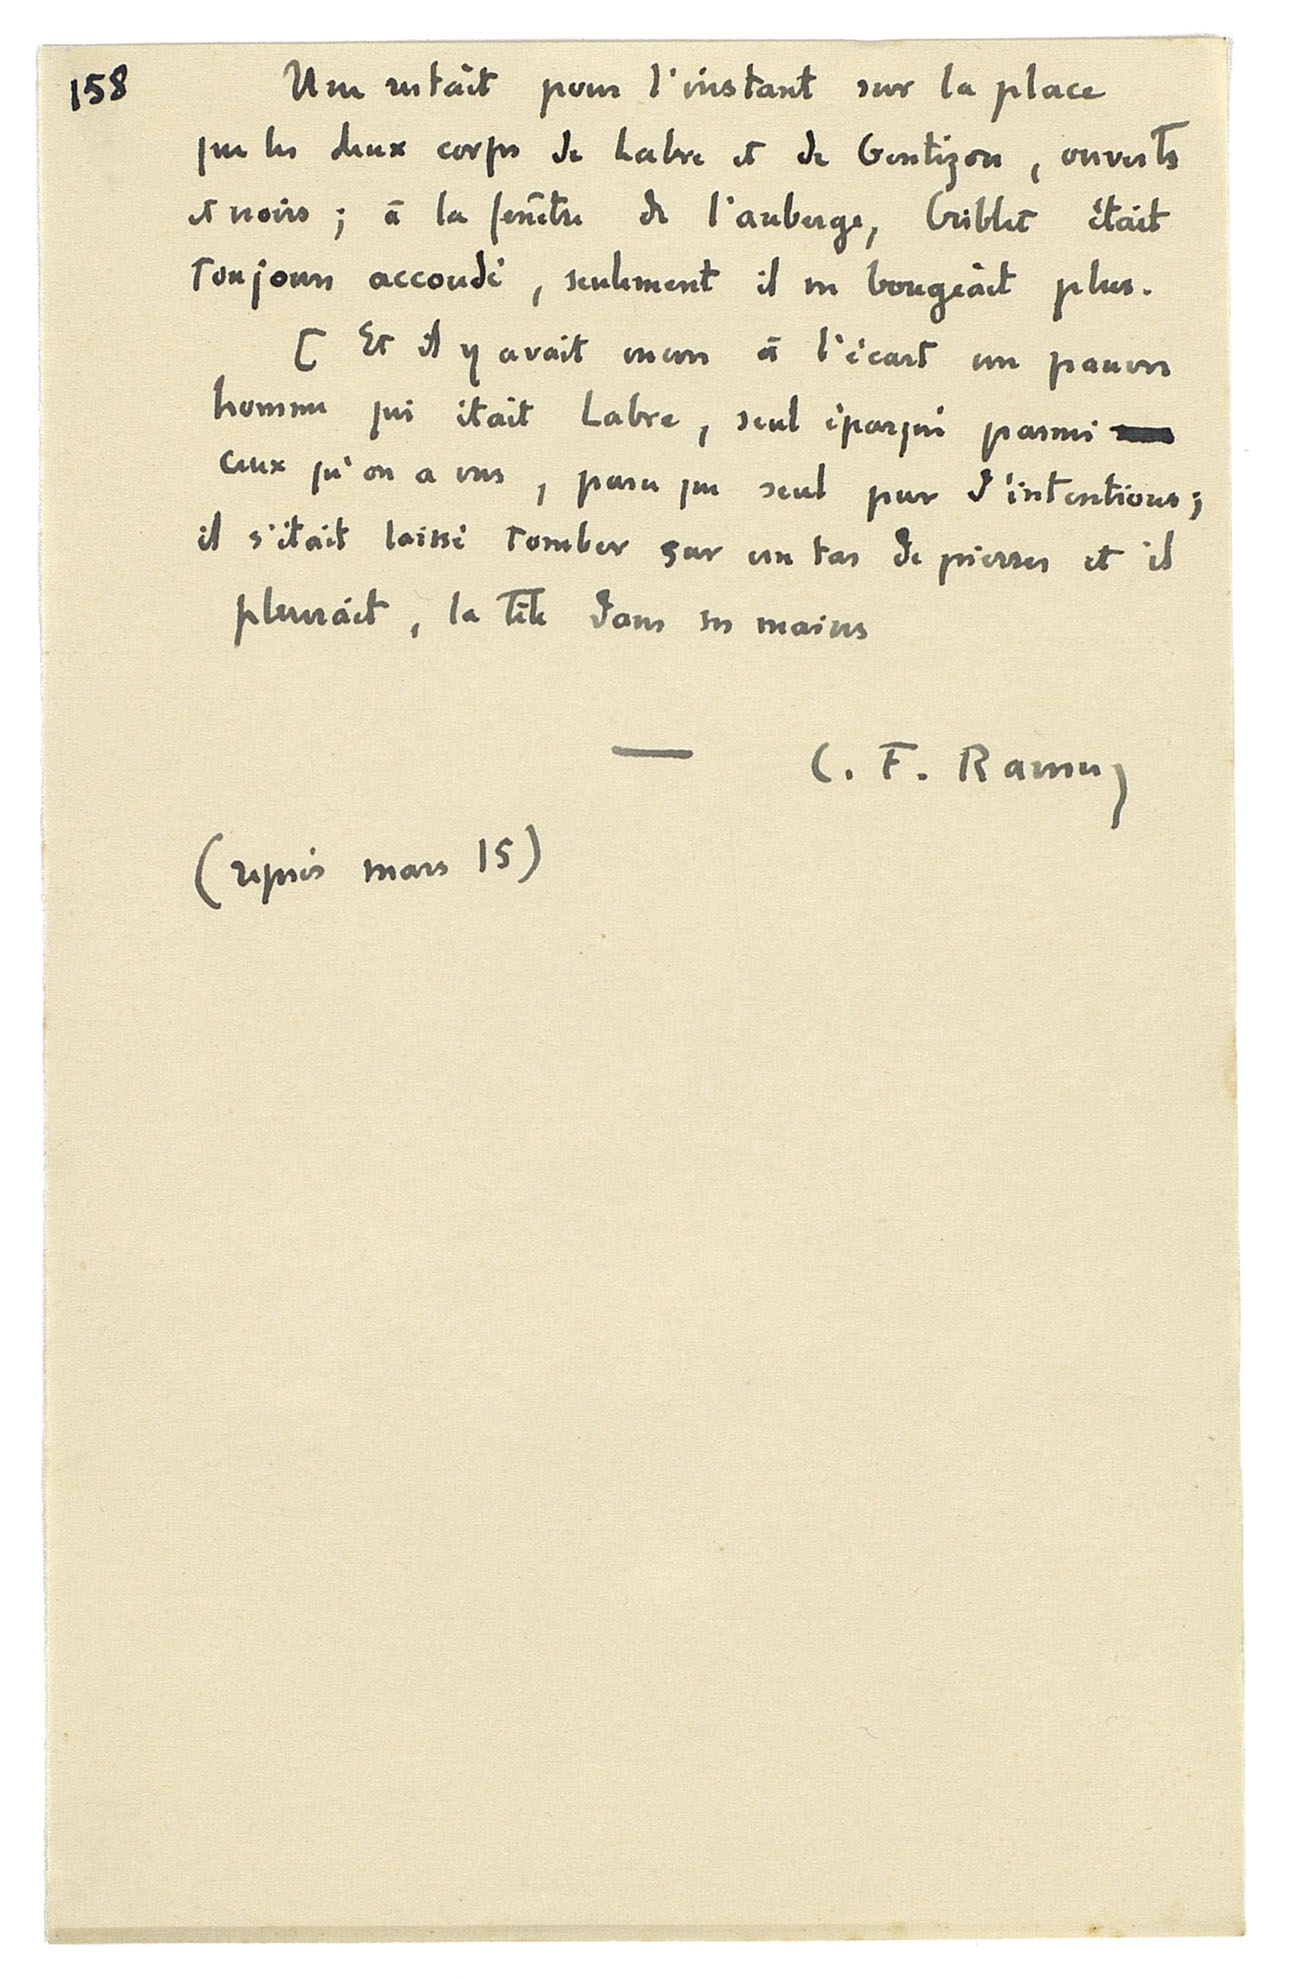 158
Il ne restait pour l'instant sur la place
que les deux corps de Labre et de Gentizon, ouverts
et noirs ; à la fenêtre de l'auberge, Criblet était
toujours accoudé, seulement il ne bougeait plus.
[ Et il y avait encore à l'écart un pauvre
homme qui était Labre, seul épargné parmi
ceux qu'on a vus, parce que seul pur d'intentions ;
il s'était laissé tomber sur un tas de pierres et il
pleurait, la tête dans ses mains
— C. F. Ramuz
(repris mars 15)